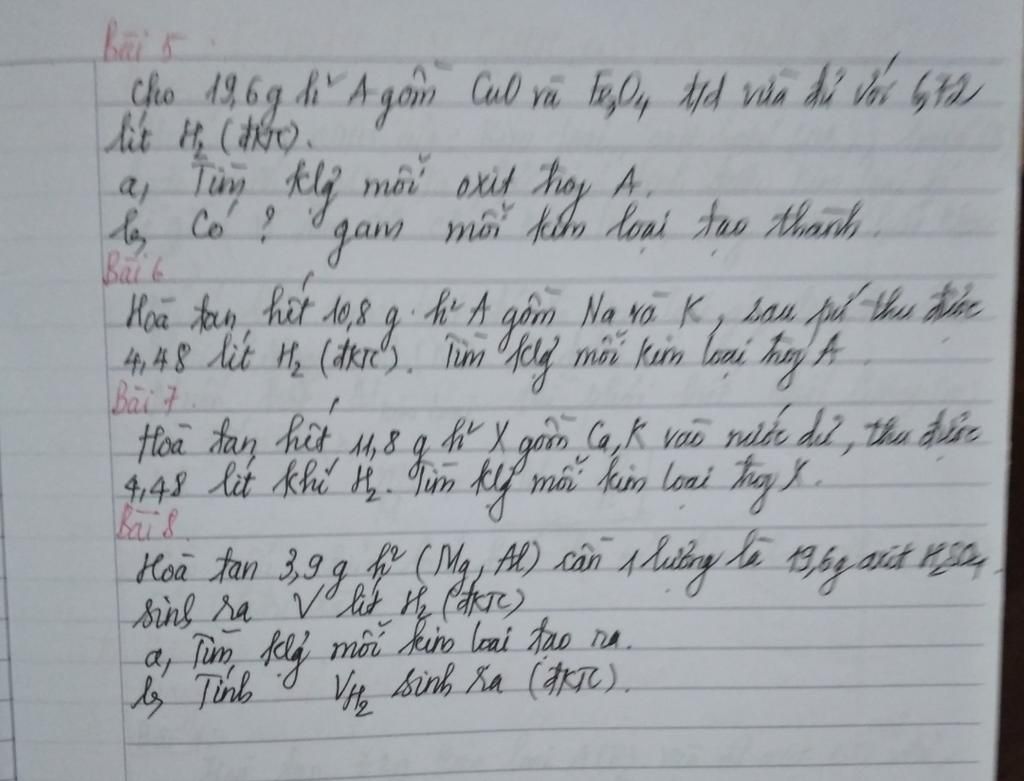 Bài 5
Cho 19,6g h² A gồm CuO và Fe₃O₄ t/d vừa đủ với 6,72
lít H₂ (đktc).
a, Tìm klg mỗi oxit trong A.
b, Có ? gam mỗi kim loại tạo thành.
Bài 6
Hoà tan hết 10,8 g h² A gồm Na và K, sau pứ thu được
4,48 lít H₂ (đktc). Tìm klg mỗi kim loại trong A
Bài 7.
Hoà tan hết 11,8 g h² X gồm Ca, K vào nước dư, thu được
4,48 lít khí H₂. Tìm klg mỗi kim loại trong X.
Bài 8.
Hoà tan 3,9 g h² (Mg, Al) cần 1 lượng là 19,6g axit H₂SO₄
sinh ra V lít H₂ (đktc)
a, Tìm klg mỗi kim loại tạo ra.
b, Tính V H₂ sinh ra (đktc).